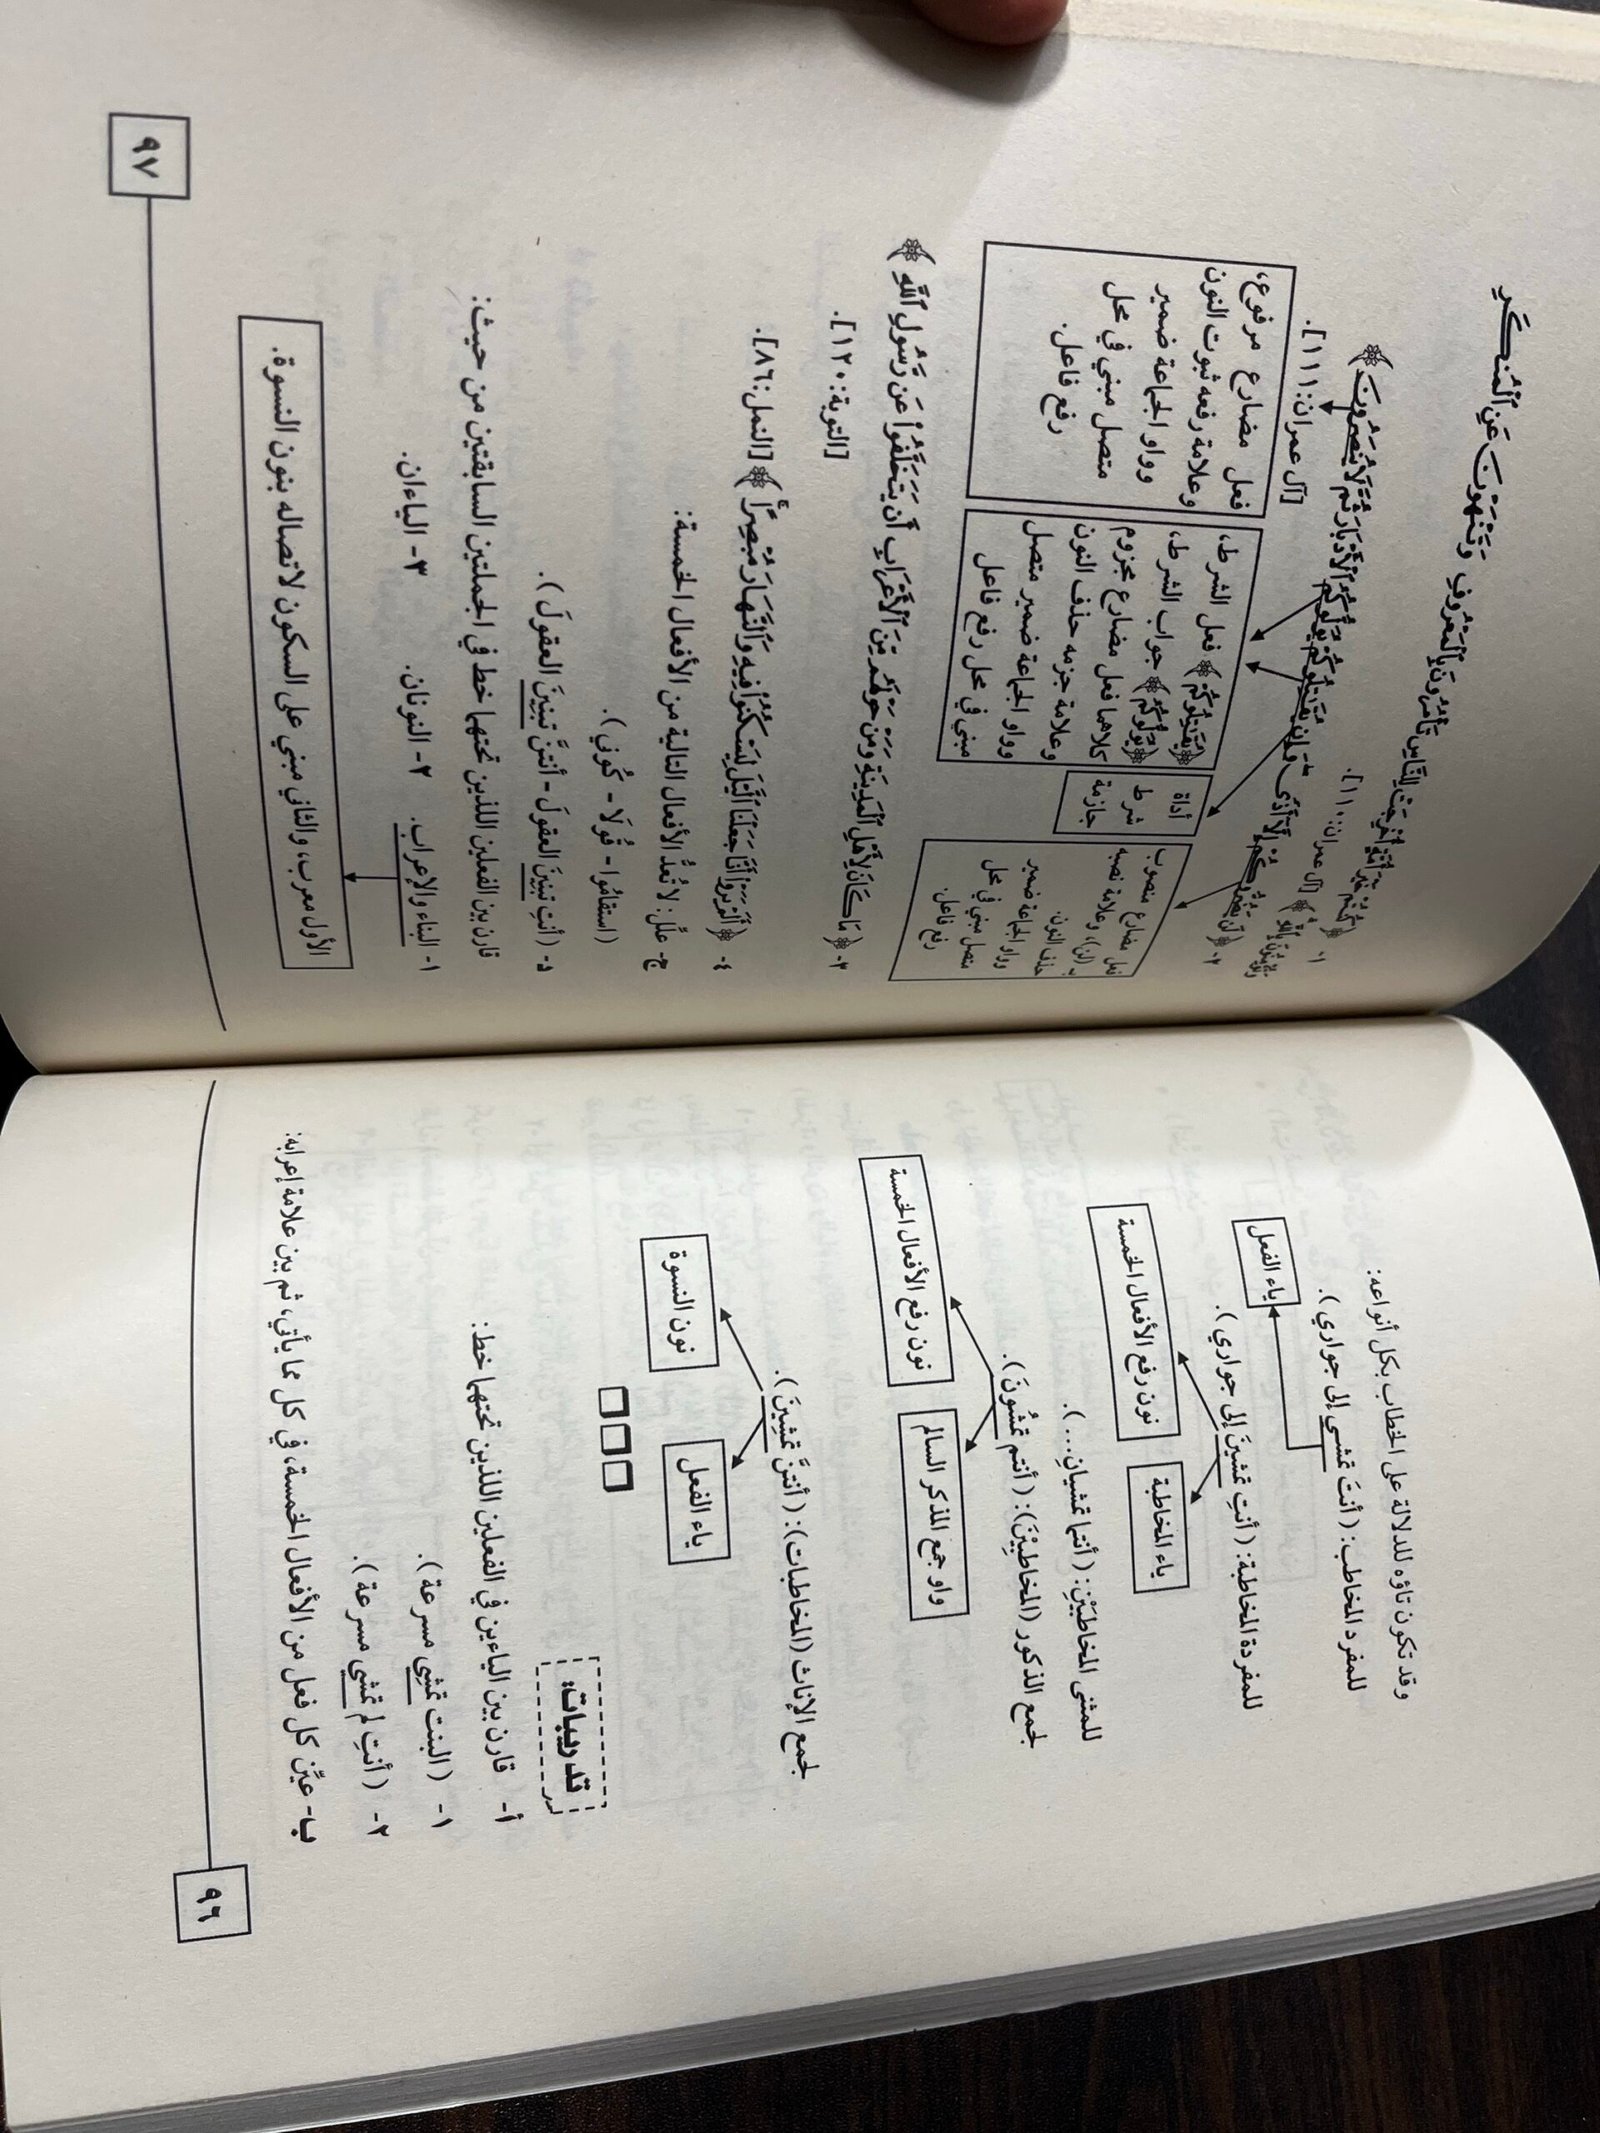 وقد تكون تاؤه للدلالة على الخطاب بكل أنواعه:
للمفرد المخاطب: (أنتَ تمشي إلى جواري).
ياء الفعل
للمفردة المخاطبة: (أنتِ تمشينَ إلى جواري).
ياء المخاطبة
نون رفع الأفعال الخمسة
للمثنى المخاطبَيْنِ: (أنتما تمشيانِ...).
لجمع الذكور (المخاطبِيْنَ): (أنتم تمشُونَ).
واو جمع المذكر السالم
نون رفع الأفعال الخمسة
لجمع الإناث (المخاطبات): (أنتنَّ تمشِينَ).
ياء الفعل
نون النسوة
تدريبات:
أ- قارن بين الياءين في الفعلين اللذين تحتهما خط:
١- (البنت تمشِي مسرعة).
٢- (أنتِ لم تمشِي مسرعة).
ب- عيِّن كل فعل من الأفعال الخمسة، في كل مما يأتي، ثم بين علامة إعرابه:
٩٦
١- ﴿كُنتُمْ خَيْرَ أُمَّةٍ أُخْرِجَتْ لِلنَّاسِ تَأْمُرُونَ بِالْمَعْرُوفِ وَتَنْهَوْنَ عَنِ الْمُنكَرِ
وَتُؤْمِنُونَ بِاللَّهِ﴾ [آل عمران: ١١٠].
٢- ﴿لَن يَضُرُّوكُمْ إِلَّا أَذًى وَإِن يُقَاتِلُوكُمْ يُوَلُّوكُمُ الْأَدْبَارَ ثُمَّ لَا يُنصَرُونَ﴾
[آل عمران: ١١١].
فعل مضارع منصوب
بـ (لن)، وعلامة نصبه
حذف النون.
وواو الجماعة ضمير
متصل مبني في محل
رفع فاعل.
أداة
شرط
جازمة
﴿يُقَاتِلُوكُمْ﴾ فعل الشرط،
﴿يُوَلُّوكُمُ﴾ جواب الشرط،
كلاهما فعل مضارع مجزوم
وعلامة جزمه حذف النون
وواو الجماعة ضمير متصل
مبني في محل رفع فاعل
فعل مضارع مرفوع،
وعلامة رفعه ثبوت النون
وواو الجماعة ضمير
متصل مبني في محل
رفع فاعل.
٣- ﴿مَا كَانَ لِأَهْلِ الْمَدِينَةِ وَمَنْ حَوْلَهُم مِّنَ الْأَعْرَابِ أَن يَتَخَلَّفُوا عَن رَّسُولِ اللَّهِ﴾
[التوبة: ١٢٠].
٤- ﴿أَلَمْ يَرَوْا أَنَّا جَعَلْنَا اللَّيْلَ لِيَسْكُنُوا فِيهِ وَالنَّهَارَ مُبْصِرًا﴾ [النمل: ٨٦].
ج- علِّل: لا تُعدُّ الأفعال التالية من الأفعال الخمسة:
(استقامُوا - قُولَا - كُوني).
د- (أنتِ تبنِينَ العقولَ - أنتنَّ تبنِينَ العقولَ).
قارن بين الفعلين اللذين تحتهما خط في الجملتين السابقتين من حيث:
١- البناء والإعراب. ٢- النونان. ٣- الياءان.
الأول معرب، والثاني مبني على السكون لاتصاله بنون النسوة.
٩٧